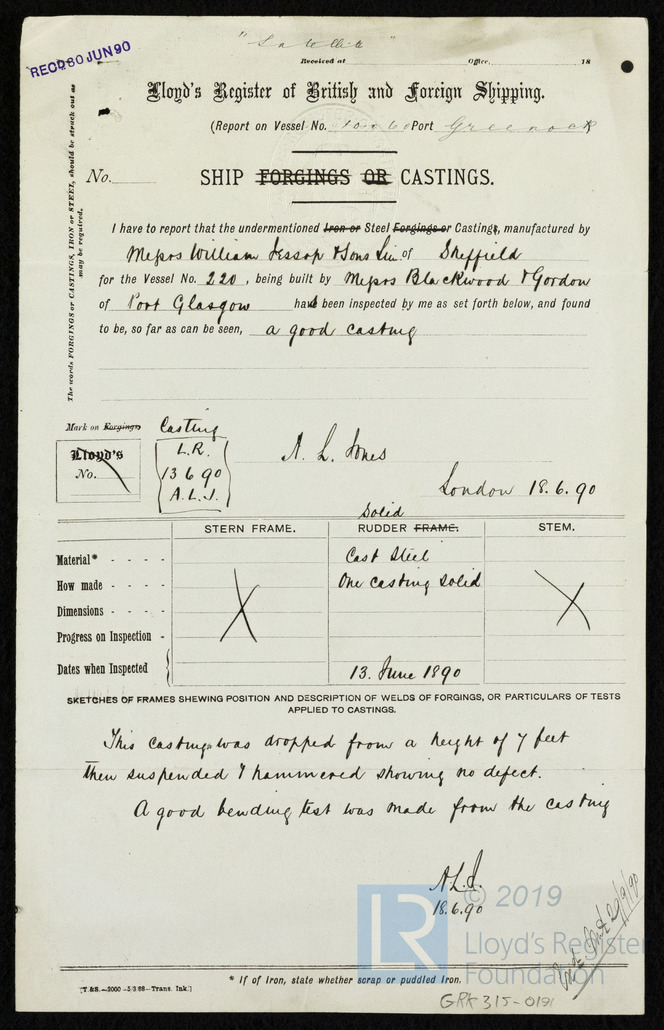 "Satellite"
RECD 30 JUN 90
Received at Office, 18
Lloyd's Register of British and Foreign Shipping.
(Report on Vessel No. Port Greenock
The words FORGINGS or CASTINGS, IRON or STEEL, should be struck out as may be required.
No.
SHIP FORGINGS OR CASTINGS.
I have to report that the undermentioned Iron or Steel Forgings or Castings, manufactured by
Messrs William Jessop & Sons Lim of Sheffield
for the Vessel No. 220, being built by Messrs Blackwood & Gordon
of Port Glasgow has been inspected by me as set forth below, and found
to be, so far as can be seen, a good casting
Mark on Forgings Casting
Lloyd's
No.
L.R.
13 6 90
A.L.J.
A. L. Jones
London 18.6.90
Solid
STERN FRAME. RUDDER FRAME. STEM.
Material* - - - - Cast Steel
How made - - - - One casting solid
Dimensions - - - -
Progress on Inspection -
Dates when Inspected 13. June 1890
SKETCHES OF FRAMES SHEWING POSITION AND DESCRIPTION OF WELDS OF FORGINGS, OR PARTICULARS OF TESTS
APPLIED TO CASTINGS.
This casting was dropped from a height of 7 feet
then suspended & hammered showing no defect.
A good bending test was made from the casting
A.L.J.
18.6.90
LR © 2019
Lloyd's Register
Foundation
* If of Iron, state whether scrap or puddled Iron.
[T & S.—2000 -5/3/88—Trans. Ink.]
GRK 315-0191